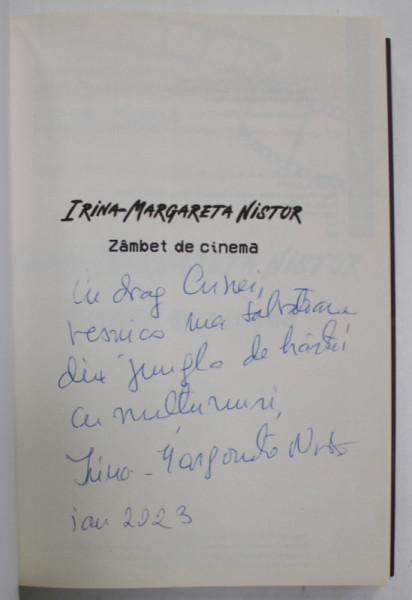 IRINA-MARGARETA NISTOR
Zâmbet de cinema
cu drag
veșnica mea salvatoare
din jungla de hârtii
cu mulțumiri,
Irina-Margareta Nistor
ian 2023